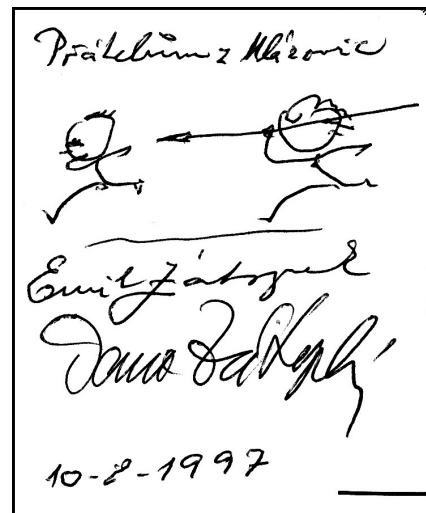 Přátelům z Mlázovic
Emil Zátopek
Dana Zátopková
10-8-1997